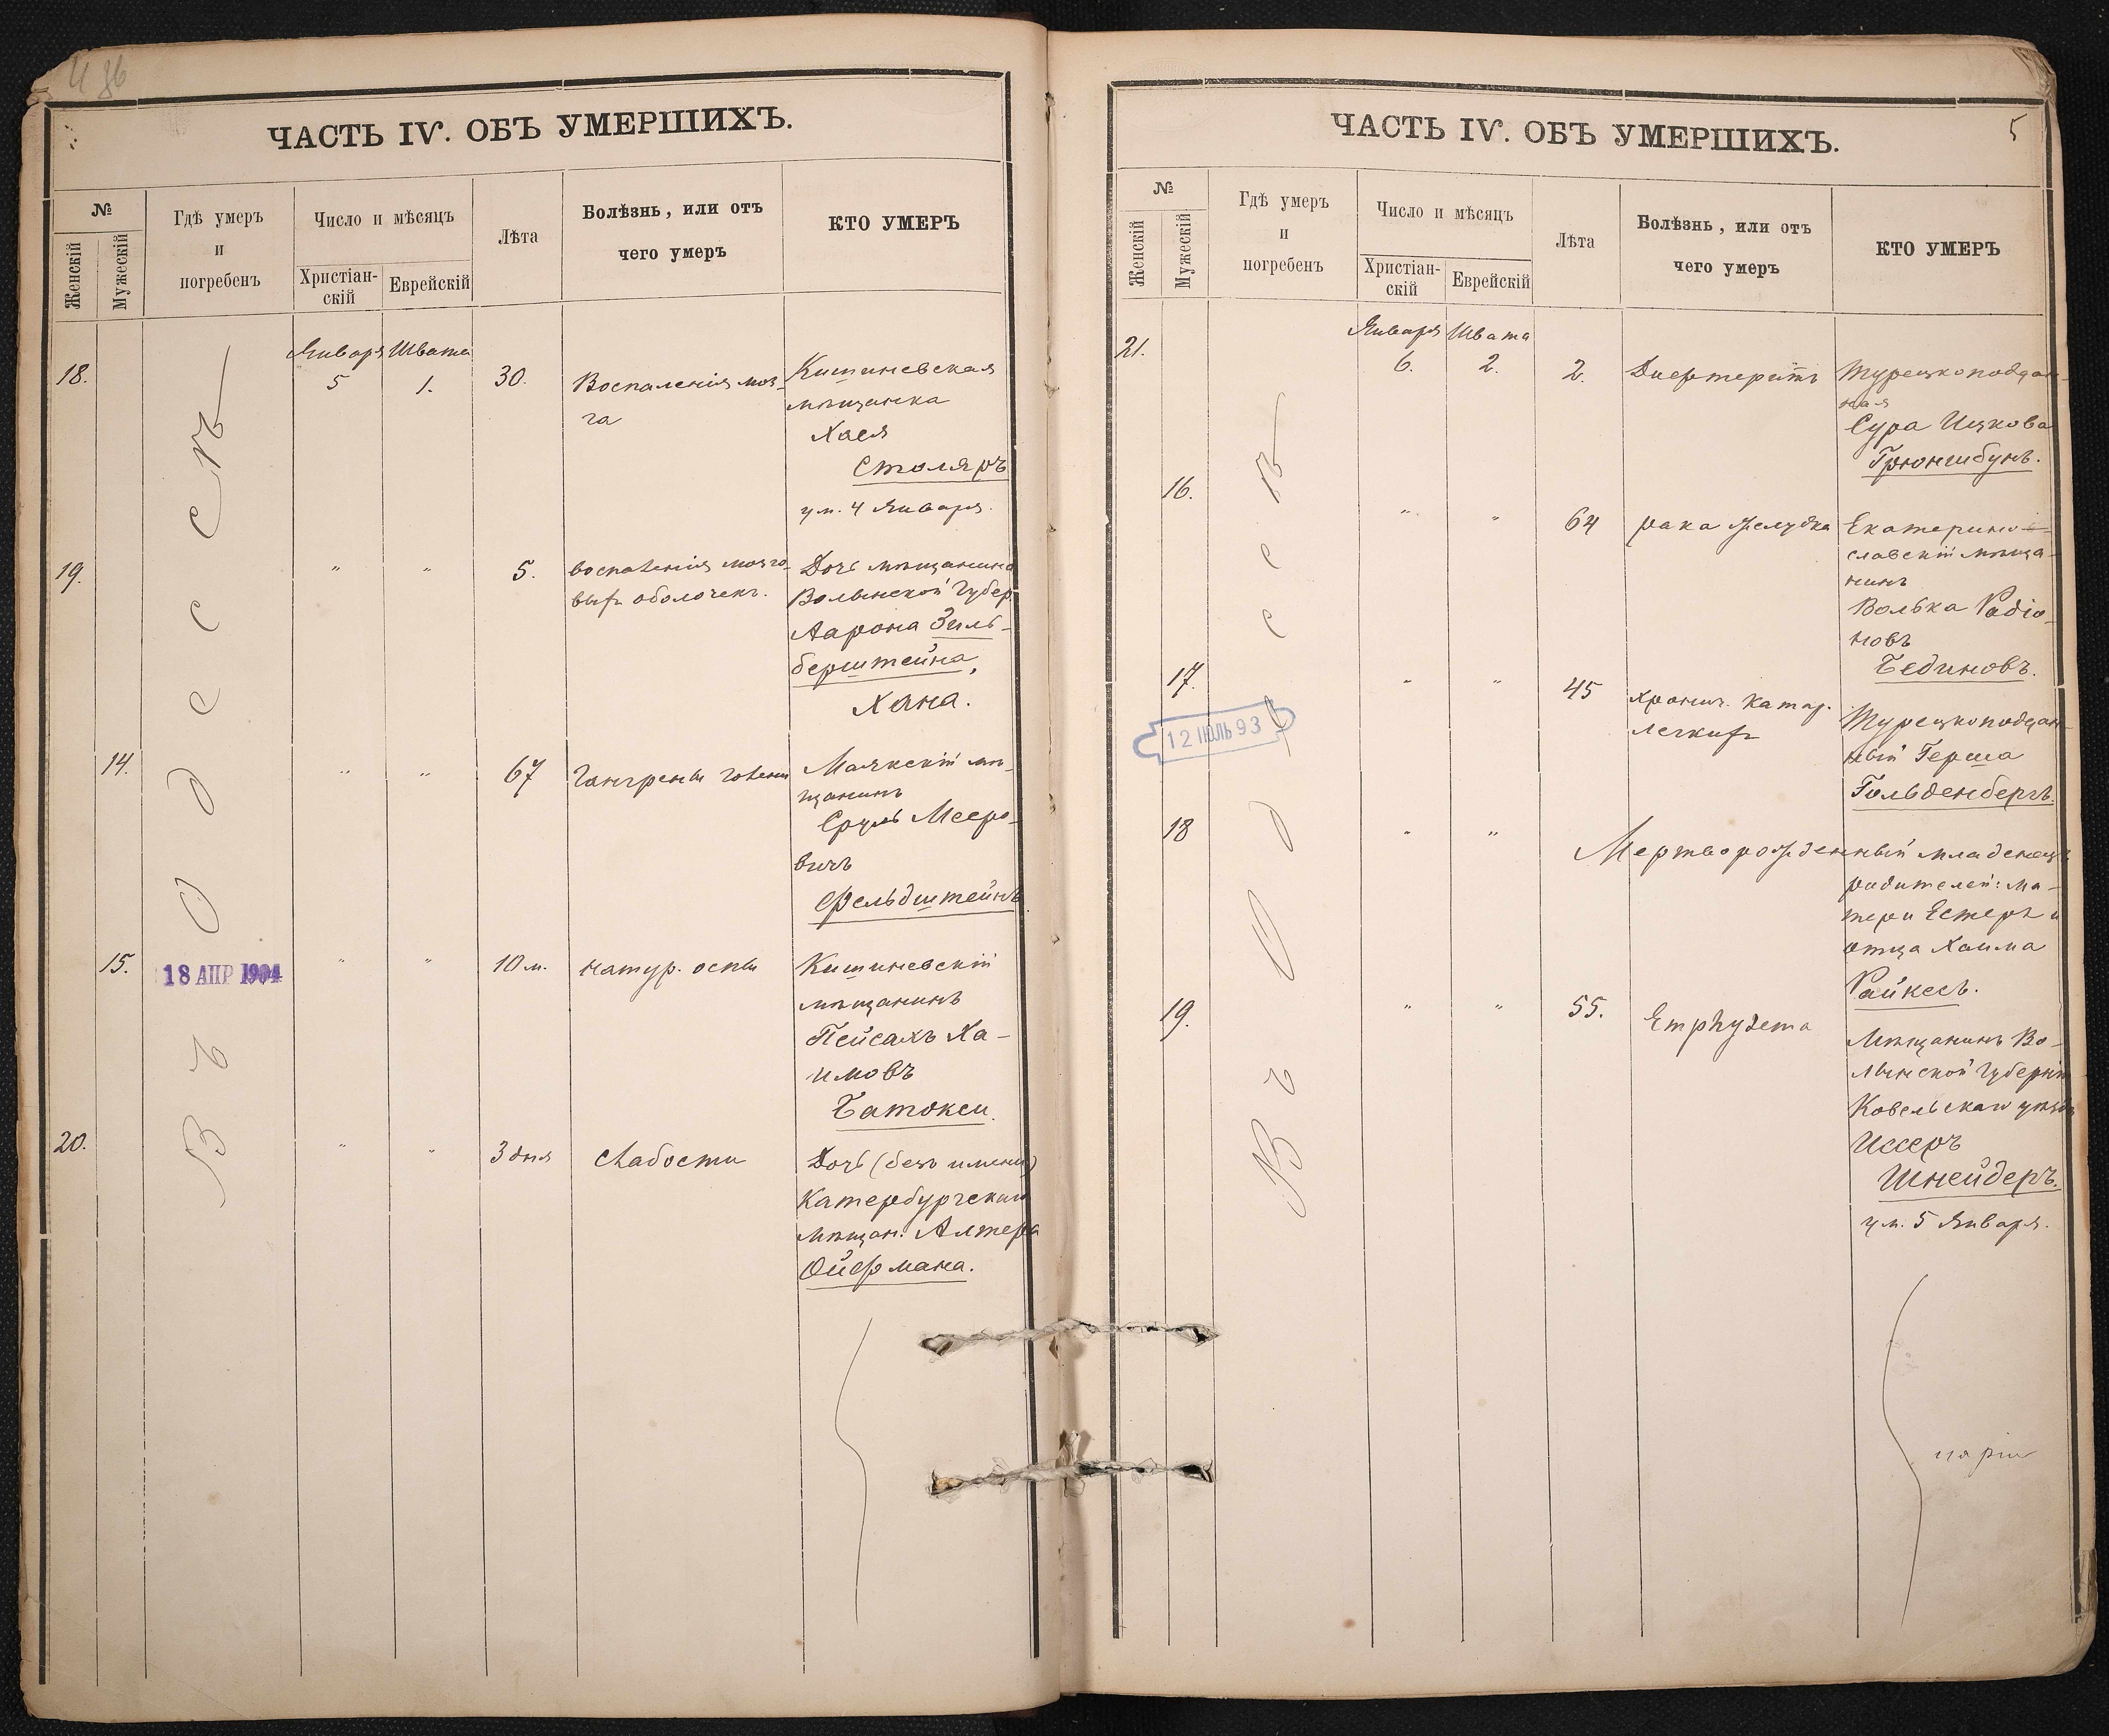 ЧАСТЬ IV. ОБЪ УМЕРШИХЪ.
№
Женскій
Мужескій
Гдѣ умеръ
и
погребенъ
Число и мѣсяцъ
Христіан-
скій
Еврейскій
Лѣта
Болѣзнь, или отъ
чего умеръ
КТО УМЕРЪ
Въ Одессѣ
Января Швата
18.
5
1.
30.
Воспаленія моз-
га
Кишиневская
мѣщанка
Хася
Столяръ
ум. 4 Января.
19.
"
"
5.
воспаленія мозго-
выхъ оболочекъ.
Дочь мѣщанина
Волынской Губер.
Аарона Зиль-
берштейна,
Хана.
14.
"
"
67
Гангрены голени
Маякскій мѣ-
щанинъ
Сруль Мееро-
вичъ
Фельдштейнъ.
15.
18 АПР 1904
"
"
10 м.
натур. оспы
Кишиневскій
мѣщанинъ
Пейсахъ Ха-
имовъ
Батокси.
20.
"
"
3 дня
слабости
Дочь (безъ имени)
Катербургскаго
мѣщан. Алтера
Ойфмана.
ЧАСТЬ IV. ОБЪ УМЕРШИХЪ.
5
№
Женскій
Мужескій
Гдѣ умеръ
и
погребенъ
Число и мѣсяцъ
Христіан-
скій
Еврейскій
Лѣта
Болѣзнь, или отъ
чего умеръ
КТО УМЕРЪ
Въ Одессѣ
Января Швата
21.
6.
2.
2.
Дифтеритъ
Турецкоподдан-
ная
Сура Ицкова
Грюнгибунъ.
16.
"
"
64
рака желудка
Екатерино-
славскій мѣща-
нинъ
Волька Радіо-
новъ
Бединовъ.
17.
12 ІЮЛЬ 93
"
"
45
хронич. катар.
легкихъ
Турецкоподдан-
ный Герша
Гольденбергъ.
18
"
"
Мертворожденный младенецъ
родителей: ма-
тери Естеръ и
отца Хаима
Райкесъ.
19.
"
"
55.
Emphyzema
Мѣщанинъ Во-
лынской Губерніи
Ковельскаго уѣзда
Иссеръ
Шнейдеръ.
ум. 5 Января.